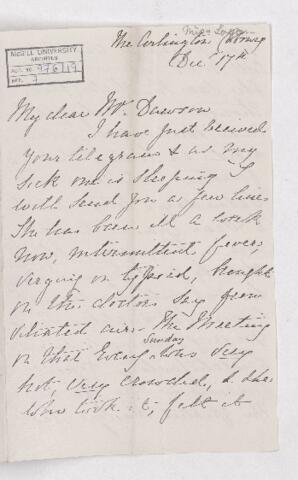 Miss Logan
McGILL UNIVERSITY
ARCHIVES
ACC. NO. 976/19
REF. 7
The Arlington
Dec 17th
My dear Mr. Dawson
I have just received
your telegram & as my
sick one is sleeping I
will send you a few lines
She has been ill a week
now, intermittent fever,
verging on typhoid, brought
on the doctors say from
vitiated air. The Meeting
on that Sunday Evening was very
hot, very crowded, & she
who took it, felt it